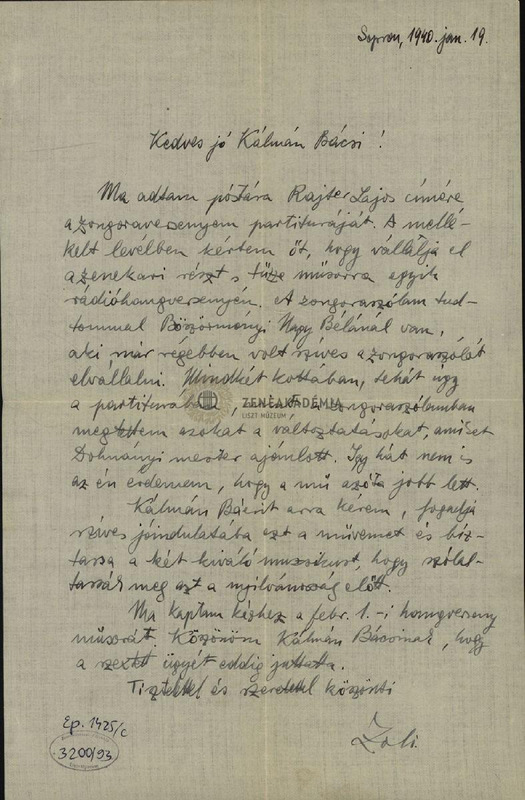 Sopron, 1940. jan. 19.
Kedves jó Kálmán Bácsi!
Ma adtam postára Rajter Lajos címére
a zongoraversenyem partituráját. A mellé-
kelt levélben kértem őt, hogy vállalja el
a zenekari részt s tűzze műsorra egyik
rádióhangversenyén. A zongoraszólam tud-
tommal Böszörményi Nagy Bélánál van,
aki már régebben volt szíves a zongoraszólót
elvállalni. Mindkét kottában, tehát úgy
a partiturában, zongoraszólamban
megtettem azokat a változtatásokat, amiket
Dohnányi mester ajánlott. Így hát nem is
az én érdemem, hogy a mű azóta jobb lett.
Kálmán Bácsit arra kérem, fogadja
szíves jóindulatába ezt a művemet és bíz-
tassa a két kiváló muzsikust, hogy szólal-
tassák meg azt a nyilvánosság előtt.
Ma kaptam kézhez a febr. 1.-i hangverseny
műsorát. Köszönöm Kálmán Bácsinak, hogy
a szextett ügyét eddig juttatta.
Tisztelettel és szeretettel köszönti
Zoli.
ZENEAKADÉMIA
LISZT MÚZEUM
Ep. 1425/c
3200/93